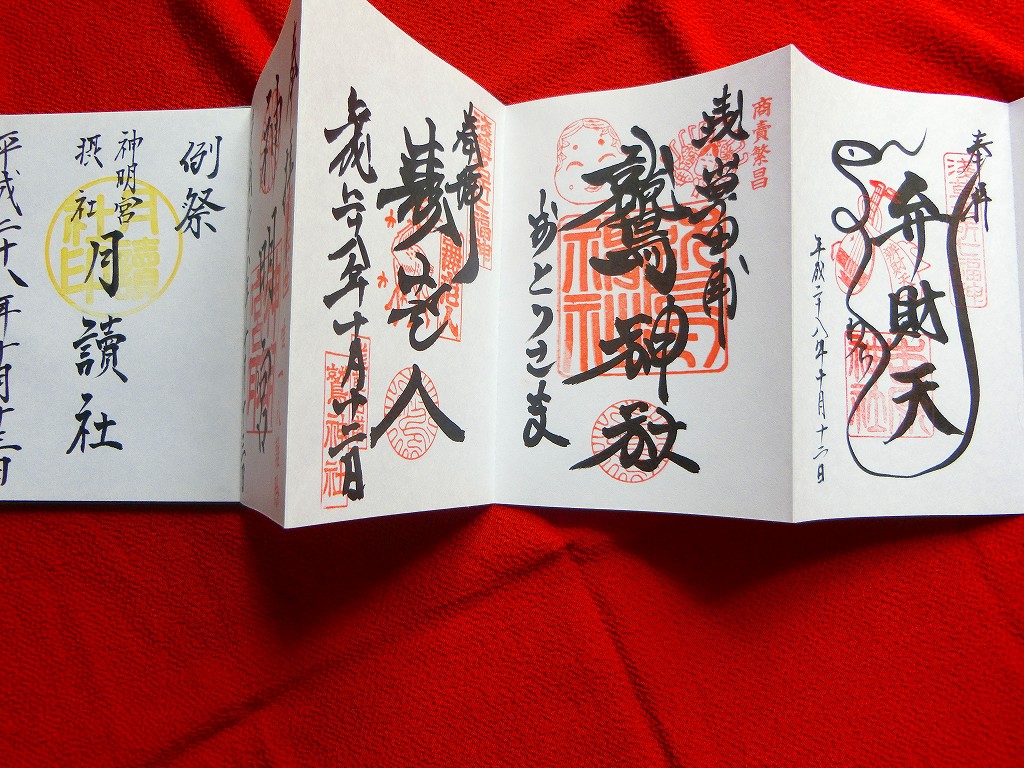 奉拝
弁財天
平成二十八年十月十二日
商賣繁昌
浅草田甫
鷲神社
おとりさま
奉拝
寿老人
平成二十八年十月十二日
鷲神社
例祭
神明宮
摂社
月讀社
平成二十八年十月十三日
月讀社印